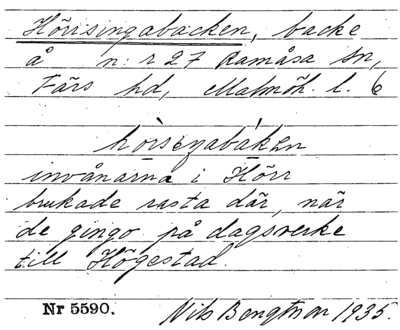 Hörrsingabacken, backe
å n:r 27 Ramåsa sn,
Färs hd, Malmöh. l. 6
hòrseŋabákęn
invånarna i Hörr
brukade rasta där, när
de gingo på dagsverke
till Högestad.
Nr 5590. Nils Bengtsson 1935.